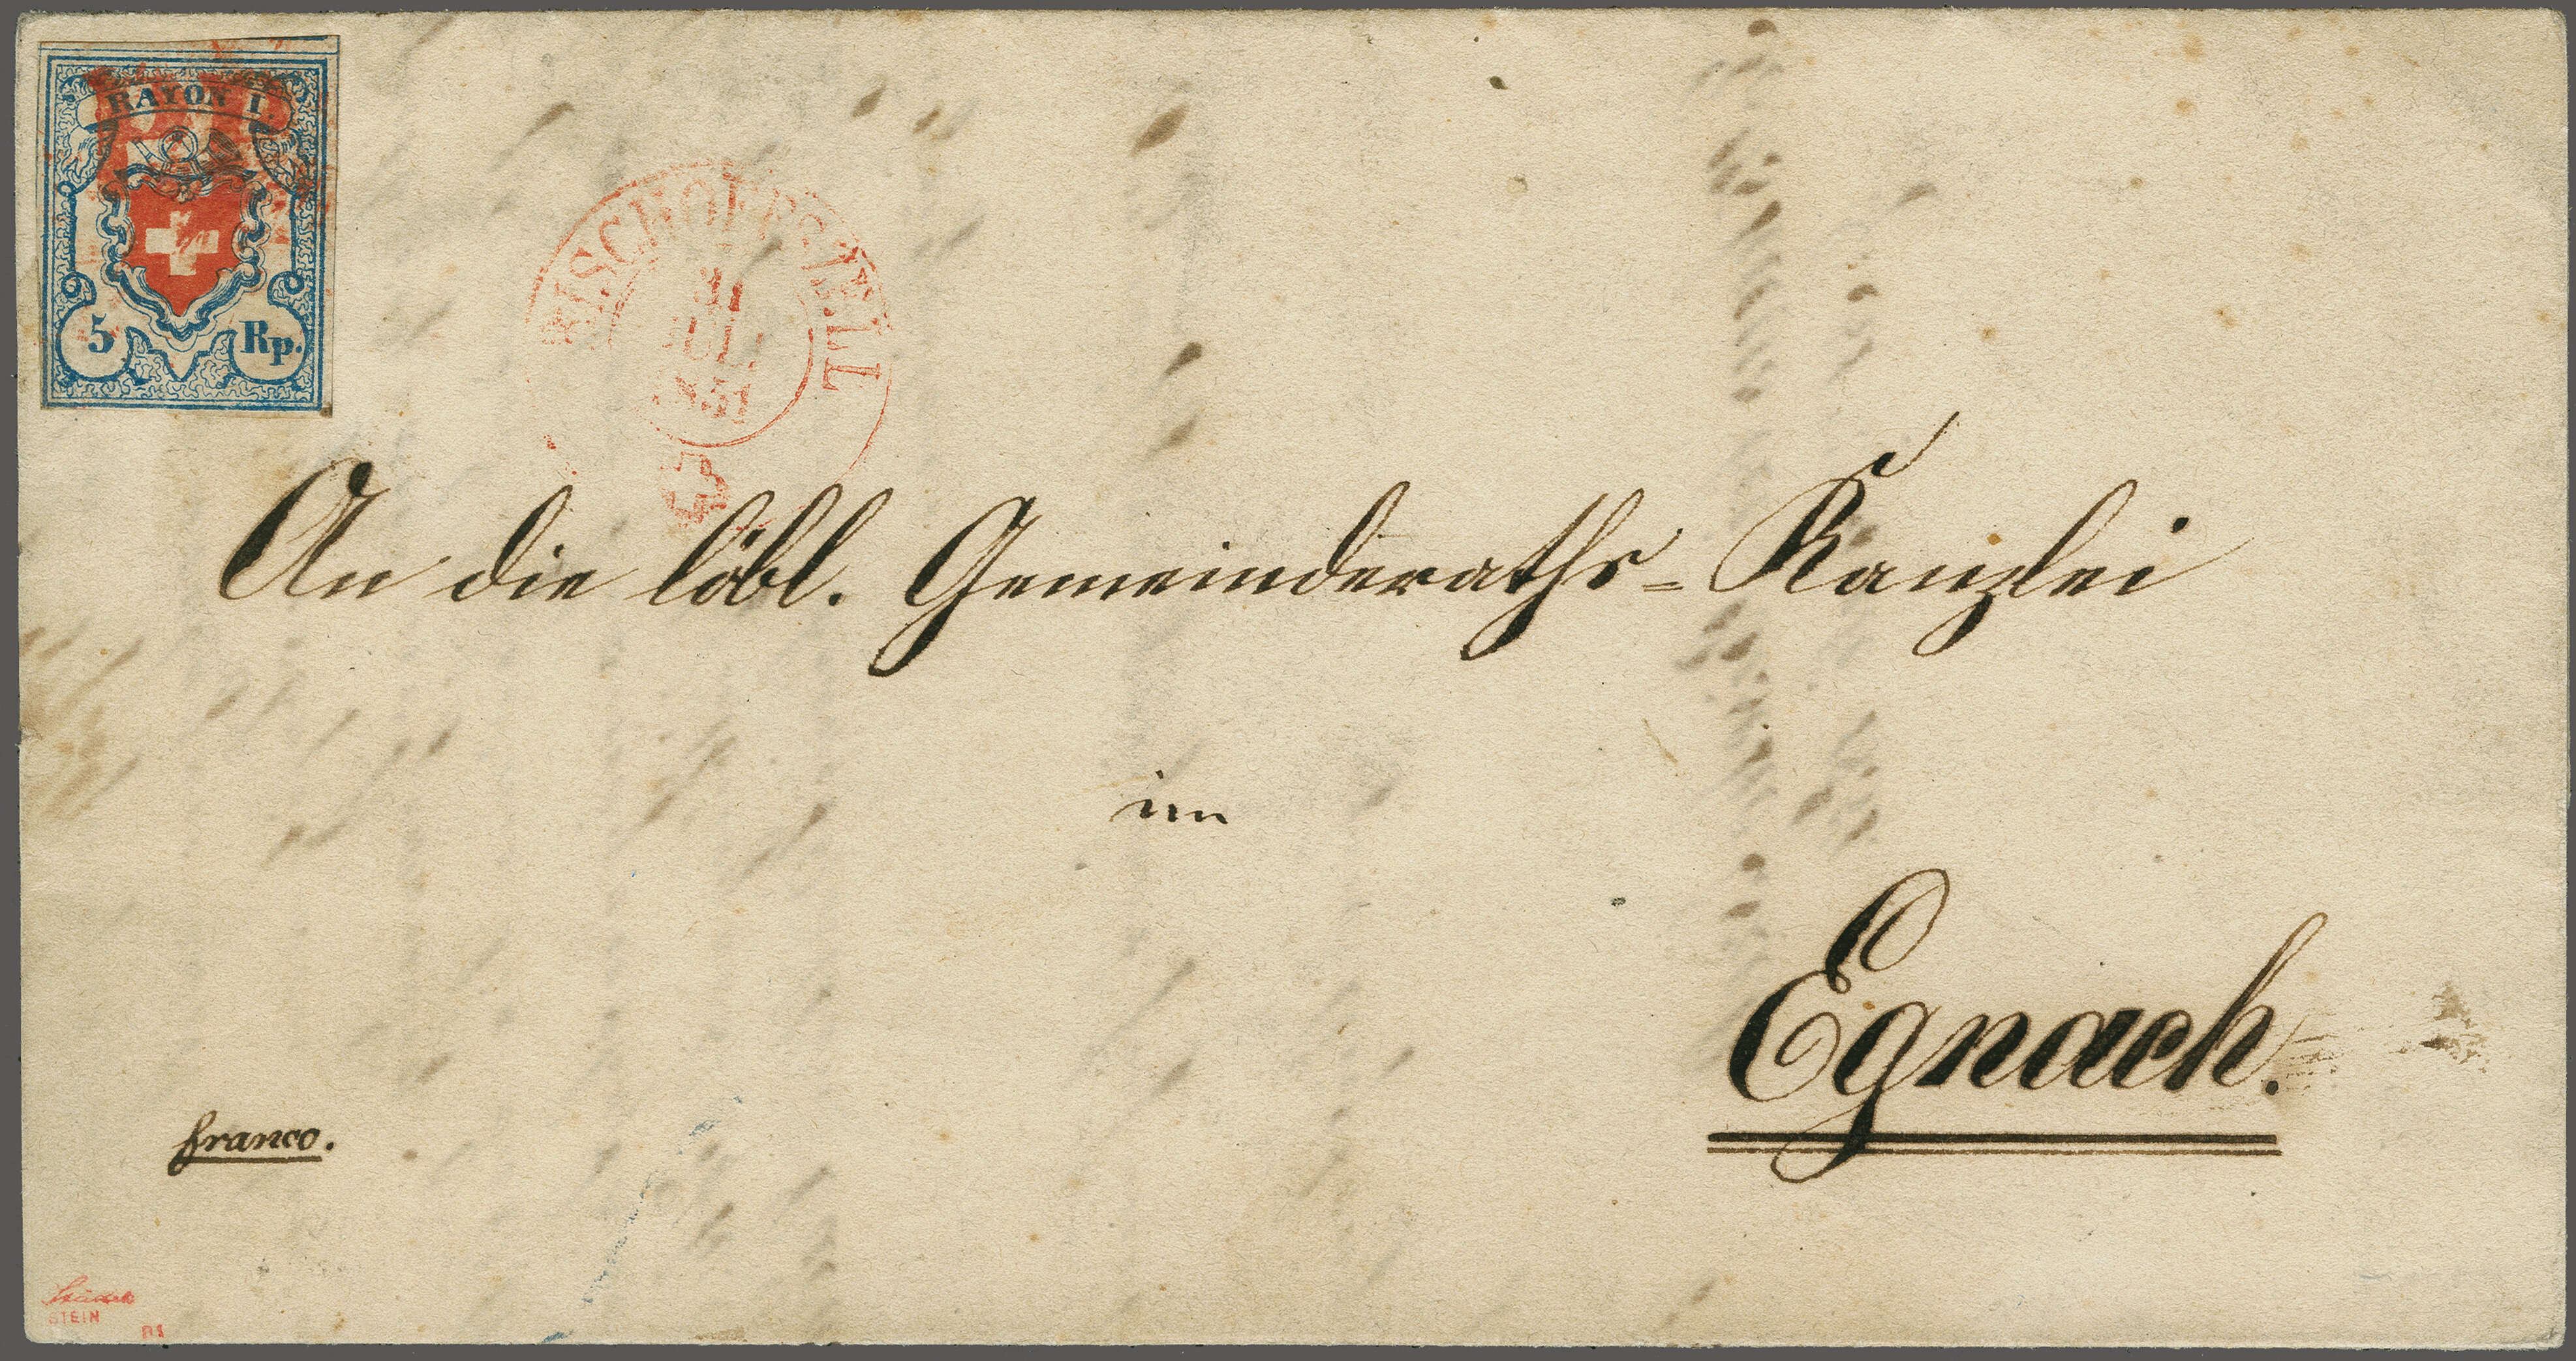 RAYON I.
5 Rp.
BISCHOFFSZELL
JUL
1851
An die löbl. Gemeinderaths-Kanzlei
im
Egnach.
franco.
STEIN